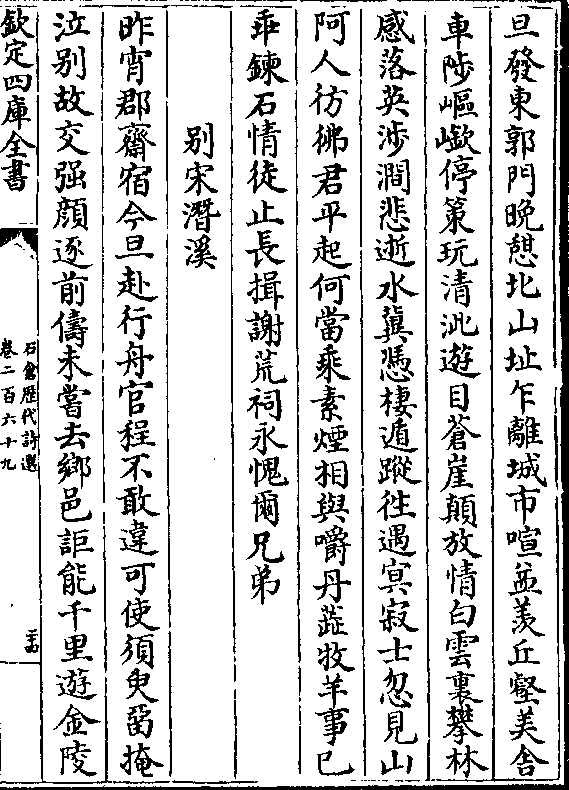 旦發東郭門晚憇北山址乍離城市喧益羨丘壑美舎
車陟嶇嶔停策玩清泚遊目蒼崖顛放情白雲裏攀林
感落英渉澗悲逝水冀憑棲遁蹤徃遇㝠寂士忽見山
阿人彷彿君平起何當乘素煙相與嚼丹蘂牧羊事已
乖鍊石情徒止長揖謝荒祠永愧爾兄弟
别宋潛溪
昨宵郡齋宿今旦赴行舟官程不敢違可使須臾留掩
泣别故交强顔逐前儔未嘗去鄉邑詎能千里遊金陵
欽定四庫全書
石倉歷代詩選
卷二百六十九